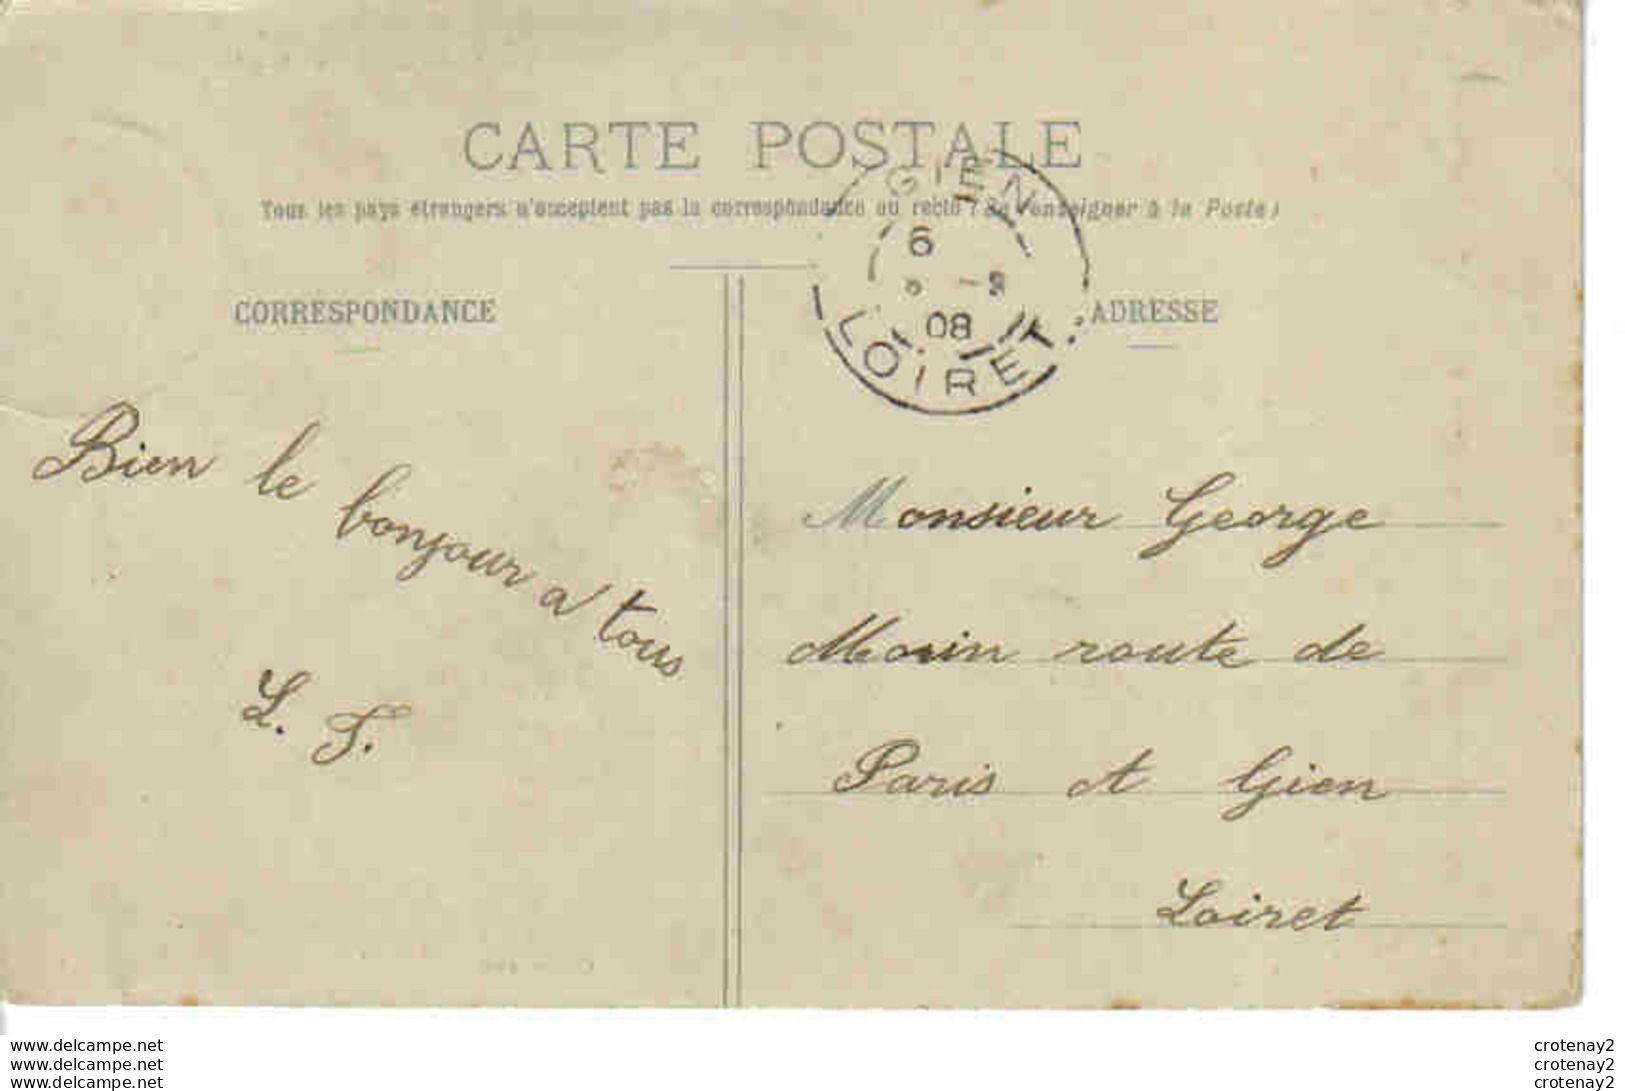 CARTE POSTALE
Tous les pays étrangers n'acceptent pas la correspondance au recto (Se renseigner à la Poste)
GIEN
6
08
LOIRET
CORRESPONDANCE
ADRESSE
Bien le bonjour a tous
L. F.
Monsieur George
Morin route de
Paris A Gien
Loiret
www.delcampe.net
www.delcampe.net
www.delcampe.net
crotenay2
crotenay2
crotenay2